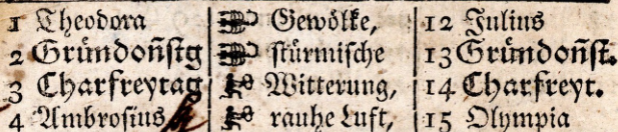 1 Theodora Gewölke, 12 Julius
2 Gründoñstg stürmische 13 Gründoñst.
3 Charfreytag Witterung, 14 Charfreyt.
4 Ambrosius rauhe Luft, 15 Olympia